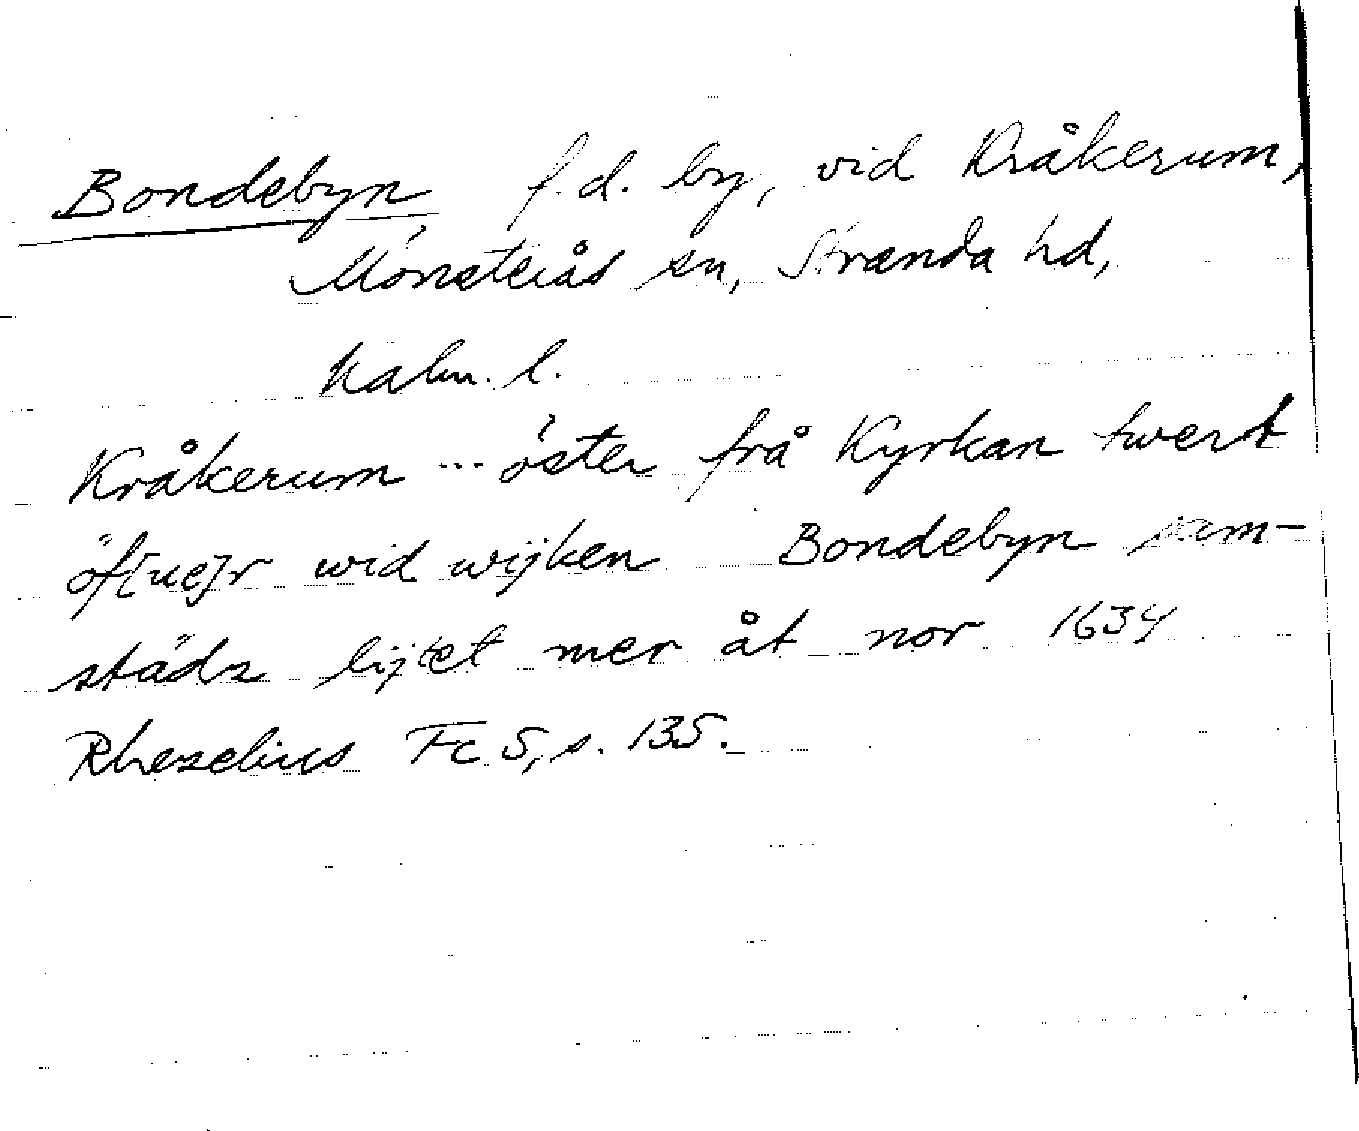 Bondebyn, f.d. by, vid Kråkerum,
Mönsterås sn, Stranda hd,
Kalm. l.
Kråkerum ... öster frå Kyrkan twert
öf[ue]r wid wijken Bondebyn sam-
städz lijtet mer åt nor 1634
Rhezelius Fc 5, s. 135.